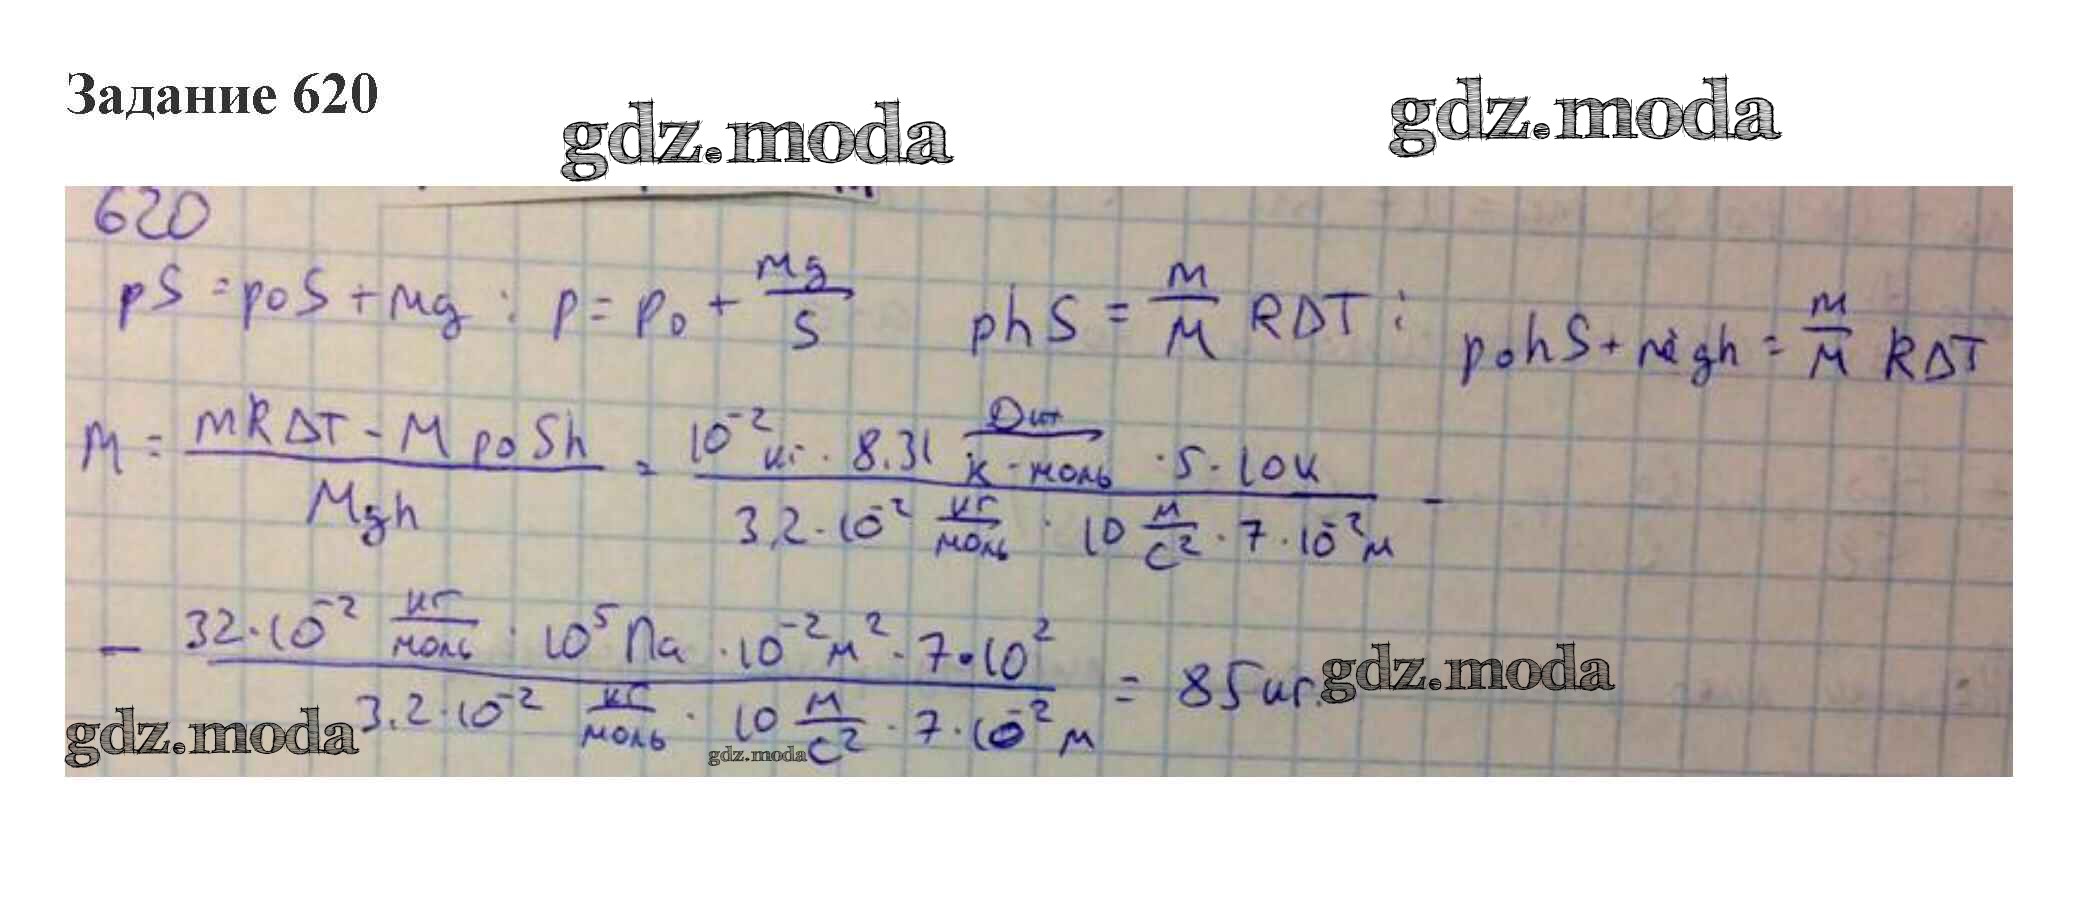 Задание 620
gdz.moda
gdz.moda
620
pS = p₀S + Mg ; p = p₀ + Mg/S   phS = m/M RΔT ; p₀hS + mgh = m/M RΔT
M = (mRΔT - Mp₀Sh)/(Mgh) = (10⁻² кг · 8.31 Дж/(К·моль) · 5 · 10К)/(3,2 · 10⁻² кг/моль · 10 м/с² · 7 · 10⁻² м) -
- (32 · 10⁻² кг/моль · 10⁵ Па · 10⁻² м² · 7 · 10²)/(3.2 · 10⁻² кг/моль · 10 м/с² · 7 · 10⁻² м) = 85 кг.
gdz.moda
gdz.moda
gdz.moda